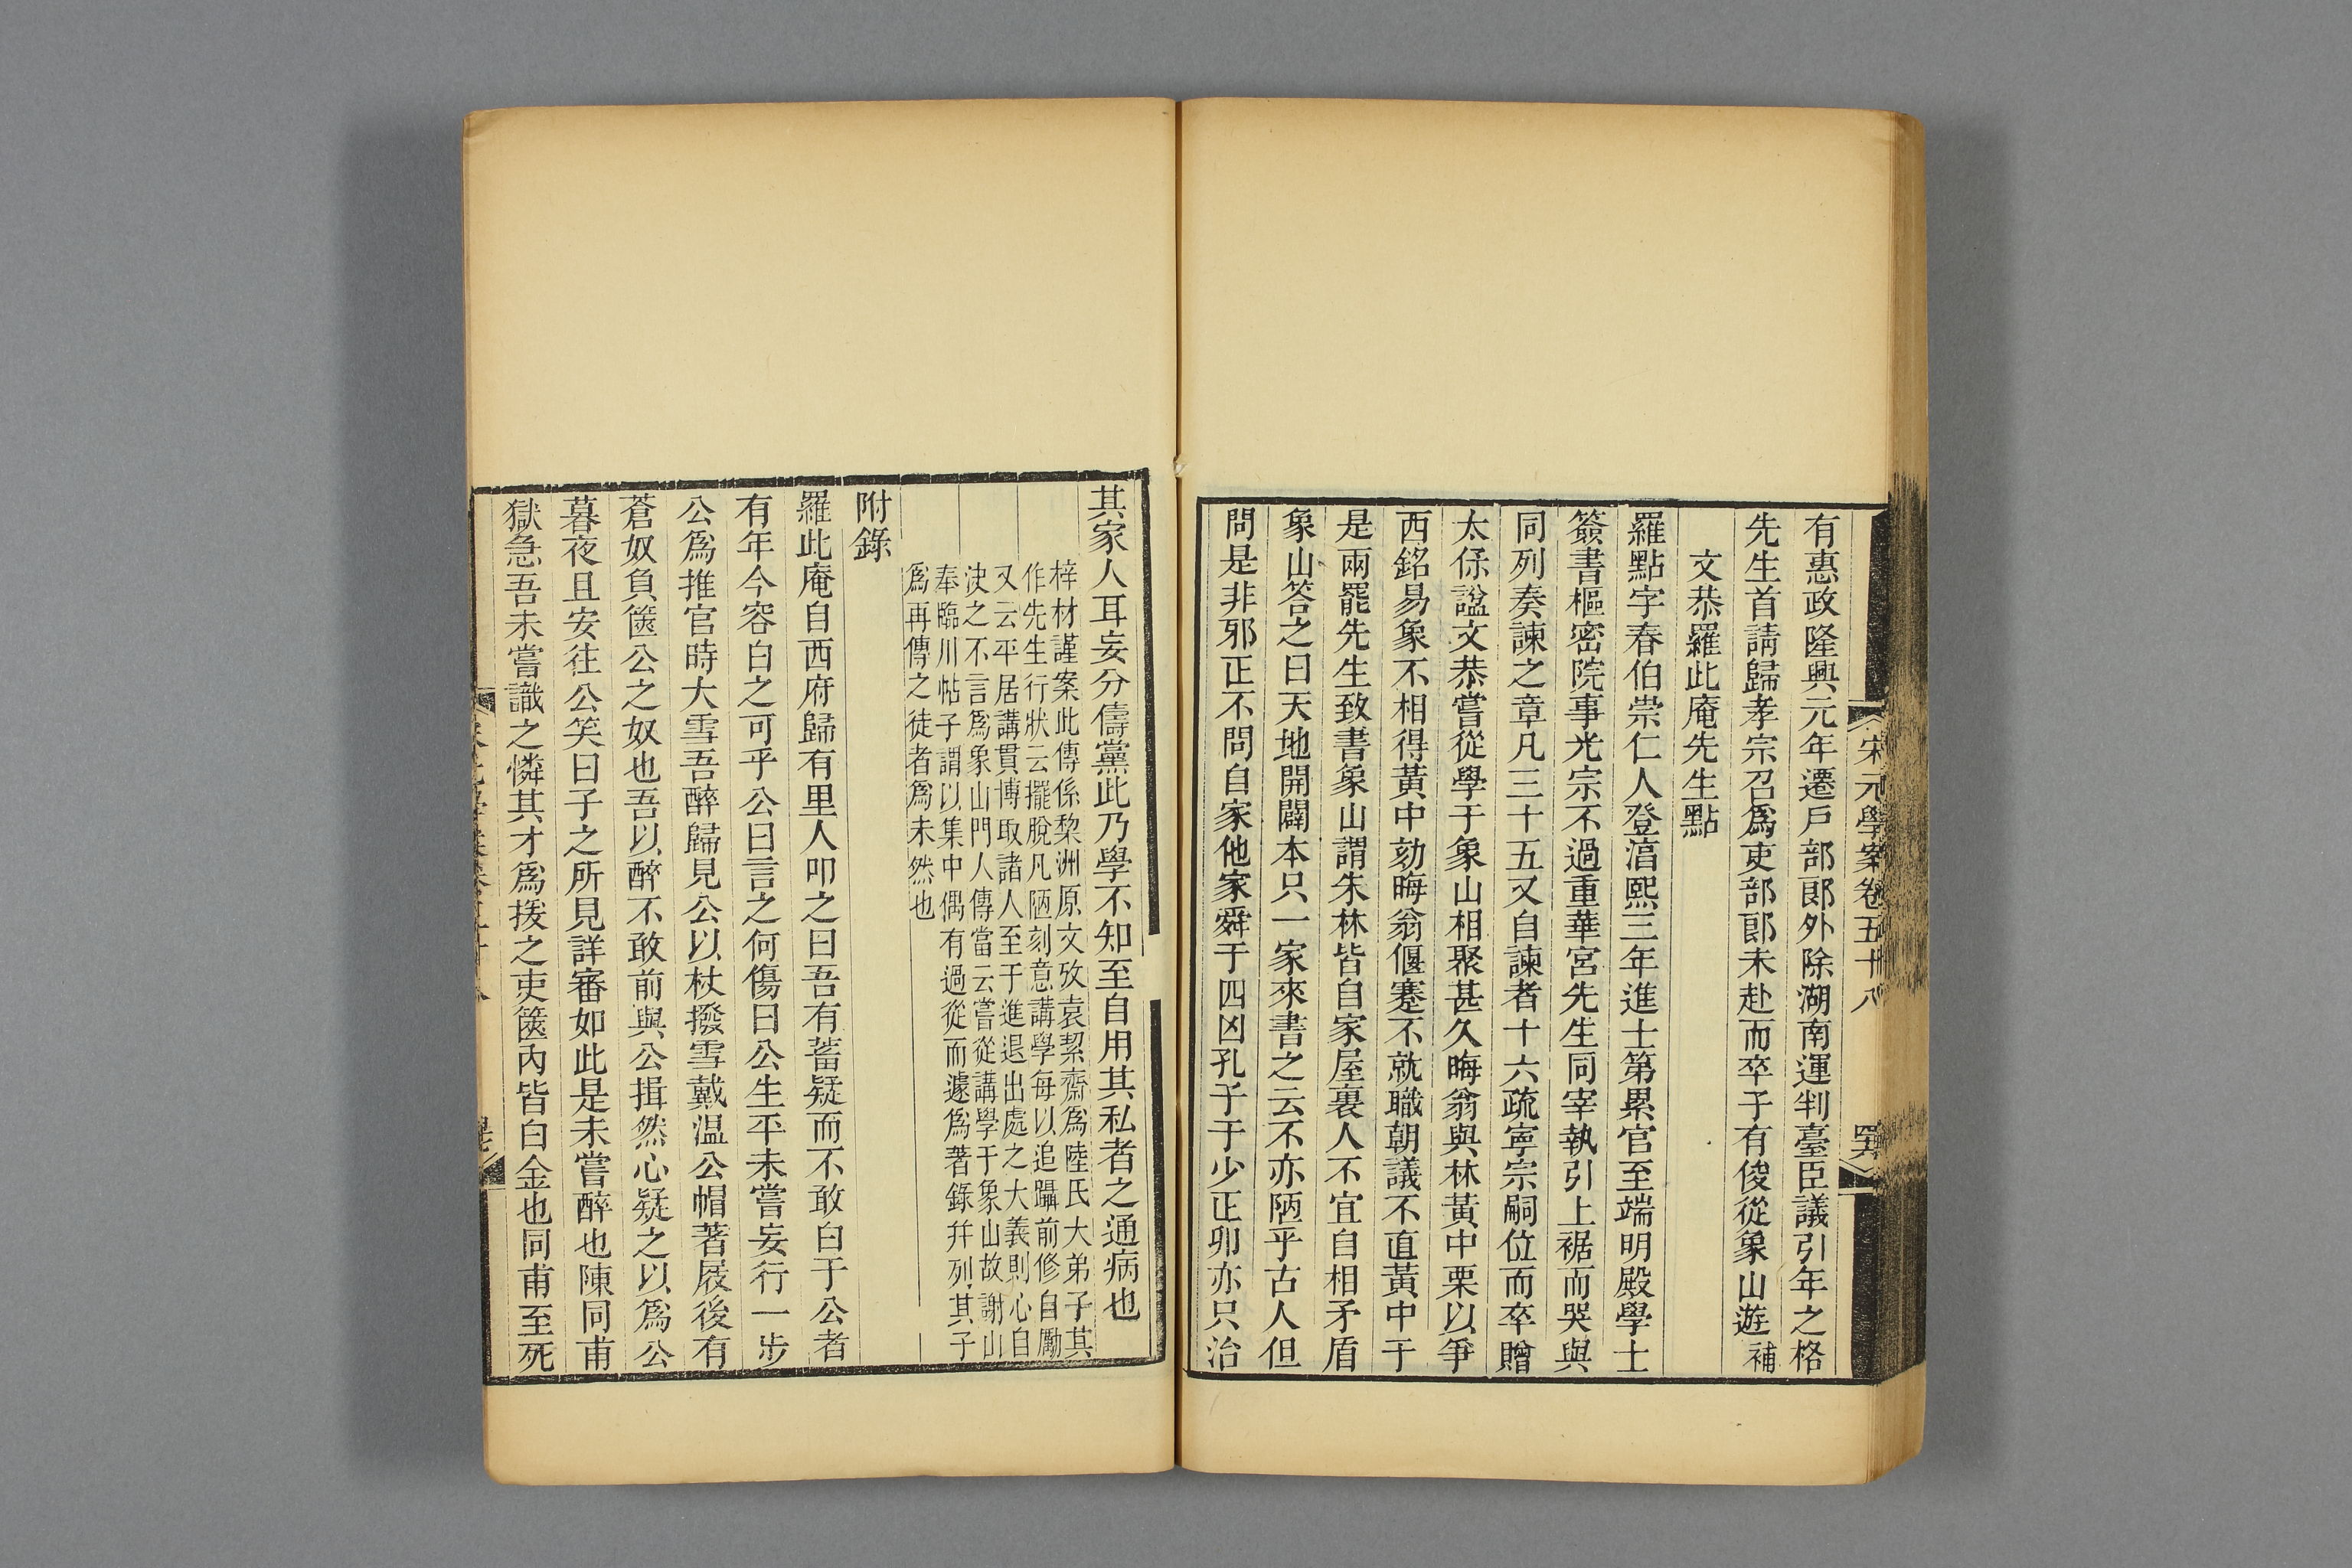 宋元學案卷五十八
有惠政隆興元年遷戸部郞外除湖南運判臺臣議引年之格
先生首請歸孝宗召爲吏部郞未赴而卒子有俊從象山遊補
文恭羅此庵先生點
羅點字春伯崇仁人登淳熙三年進士第累官至端明殿學士
簽書樞密院事光宗不過重華宮先生同宰執引上裾而哭與
同列奏諫之章凡三十五又自諫者十六疏寧宗嗣位而卒贈
太保諡文恭嘗從學于象山相聚甚久晦翁與林黃中栗以爭
西銘易象不相得黃中劾晦翁偃蹇不就職朝議不直黃中于
是兩罷先生致書象山謂朱林皆自家屋裏人不宜自相矛盾
象山答之曰天地開闢本只一家來書之云不亦陋乎古人但
問是非邪正不問自家他家舜于四凶孔子于少正卯亦只治
其家人耳妄分儔黨此乃學不知至自用其私者之通病也
梓材謹案此傳係棃洲原文攷袁絜齋爲陸氏大弟子其
作先生行狀云擺脫凡陋刻意講學每以追躡前修自勵
又云平居講貫博取諸人至于進退出處之大義則心自
決之不言爲象山門人傳當云嘗從講學于象山故謝山
奉臨川帖子謂以集中偶有過從而遽爲著錄幷列其子
爲再傳之徒者爲未然也
附錄
羅此庵自西府歸有里人叩之曰吾有蓄疑而不敢白于公者
有年今容白之可乎公曰言之何傷曰公生平未嘗妄行一步
公爲推官時大雪吾醉歸見公以杖撥雪戴温公帽著屐後有
蒼奴負篋公之奴也吾以醉不敢前與公揖然心疑之以爲公
暮夜且安往公笑曰子之所見詳審如此是未嘗醉也陳同甫
獄急吾未嘗識之憐其才爲援之吏篋內皆白金也同甫至死